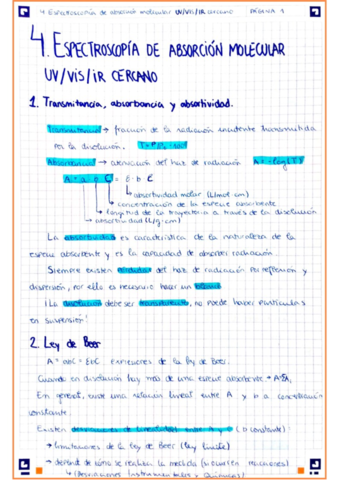 4 Espectroscopía de absorción molecular UV/vis/IR cercano PÁGINA 1
4. ESPECTROSCOPÍA DE ABSORCIÓN MOLECULAR
UV/VIS/IR CERCANO
1. Transmitancia, absorbancia y absortividad.
Transmitancia → fracción de la radiación incidente transmitida
por la disolución. T = P/P₀ · 100
Absorbancia → atenuación del haz de radiación A = -log(T)
A = a · b · C = ε · b · C
absortividad molar (L/mol·cm)
concentración de la especie absorbente
longitud de la trayectoria a través de la disolución
absortividad (L/g·cm)
La absortividad es característica de la naturaleza de la
especie absorbente y es la capacidad de absorber radiación.
Siempre existen pérdidas del haz de radiación por reflexión y
dispersión, por ello es necesario hacer un blanco.
¡La disolución debe ser transparente, no puede haber partículas
en suspensión!
2. Ley de Beer
A = abC = εbC expresiones de la ley de Beer.
Cuando en disolución hay más de una especie absorbente →
En general, existe una relación lineal entre A y la concentración
constante.
Existen desviaciones de linealidad entre A y (b constante)
→ limitaciones de la ley de Beer (ley límite)
→ depende de cómo se realiza la medida
(Desviaciones instrumentales y químicas)